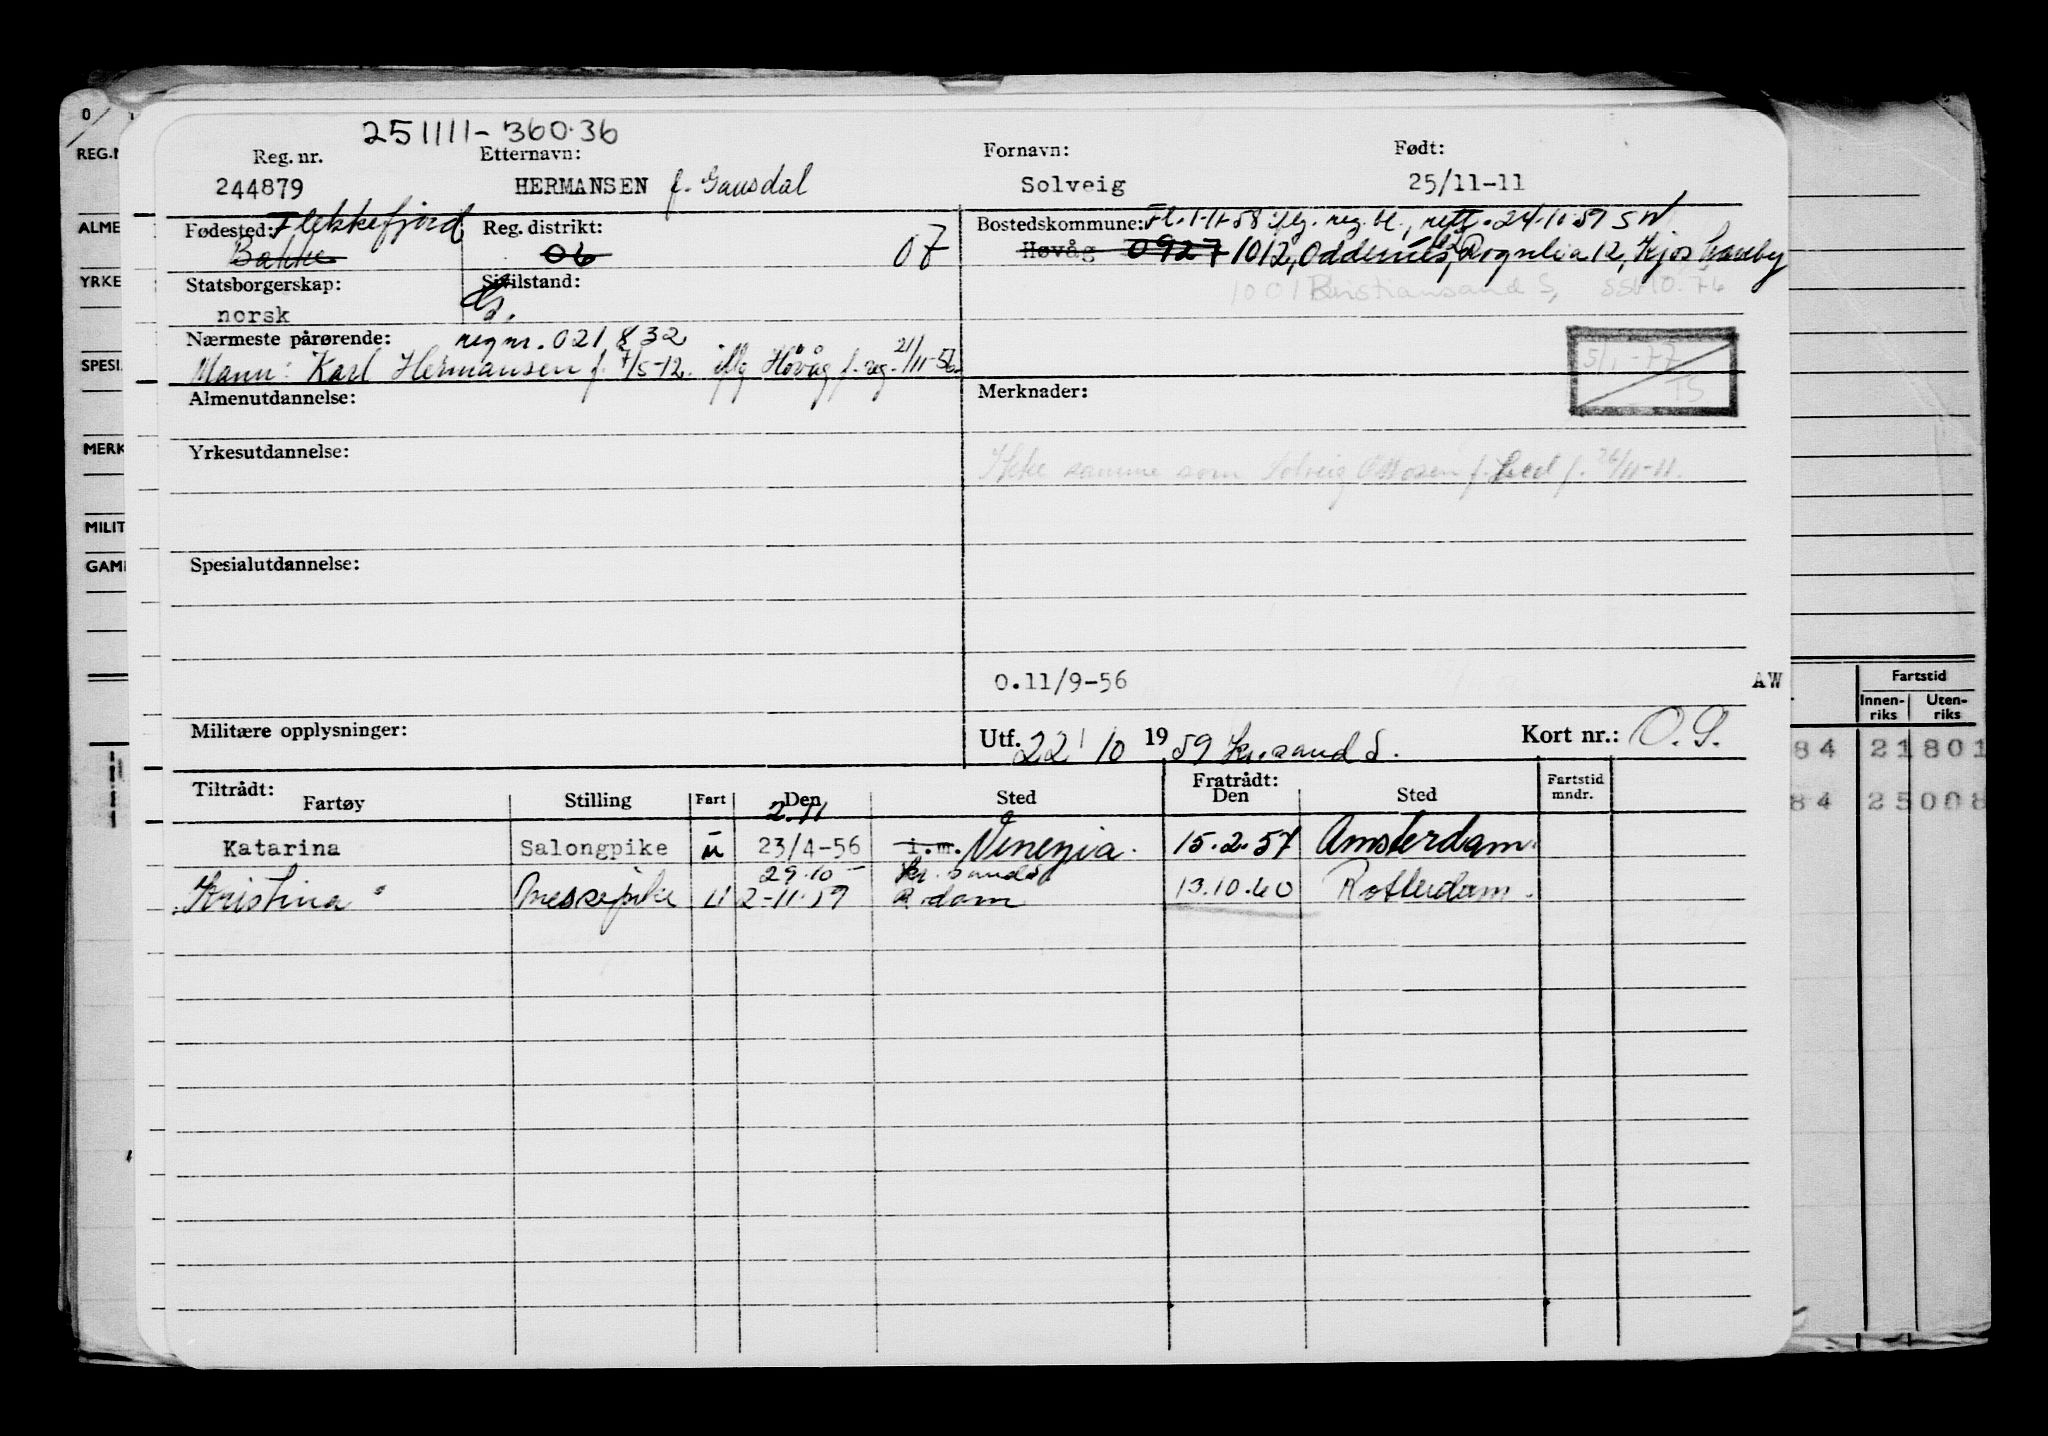 251111-360.36
Reg. nr. Etternavn: Fornavn: Født:
244879 HERMANSEN f. Gausdal Solveig 25/11-11
Fødested: Flekkefjord Reg. distrikt: Bostedskommune: Fl. 1-11-58 iflg. reg. bl., rett. 24.10.59 SW
Bakke 06 07 Høvåg 0927 1012, Oddernes, Rognlia 12, Kjos Haveby
Statsborgerskap: Sivilstand: 1001 Kristiansand S, SSB 10.76
norsk G.
Nærmeste pårørende: regnr. 021832
Mann: Karl Hermansen f. 7/5-12. iflg Høvåg f. reg. 21/11-56
5/1-77
TS
Almenutdannelse: Merknader:
Yrkesutdannelse: Ikke samme som Solveig Ottosen f. 26/11-11.
Spesialutdannelse:
0.11/9-56 AW
Militære opplysninger: Utf. 22/10 1959 Kr.sand S. Kort nr.: O.S.
Tiltrådt: Fratrådt:
Fartøy Stilling Fart Den Sted Den Sted Fartstid mndr.
2.11
Katarina Salongpike u 23/4-56 i.m. Venezia. 15.2.57 Amsterdam.
29.10 Kr. sand S
Kristina " Messepike U 2-11-59 R.dam 13.10.60 Rotterdam.
0
REG.N
ALME
YRKE
SPESI
MERK
MILIT
GAMI
Fartstid
Innen-riks Uten-riks
84 21801
84 25008